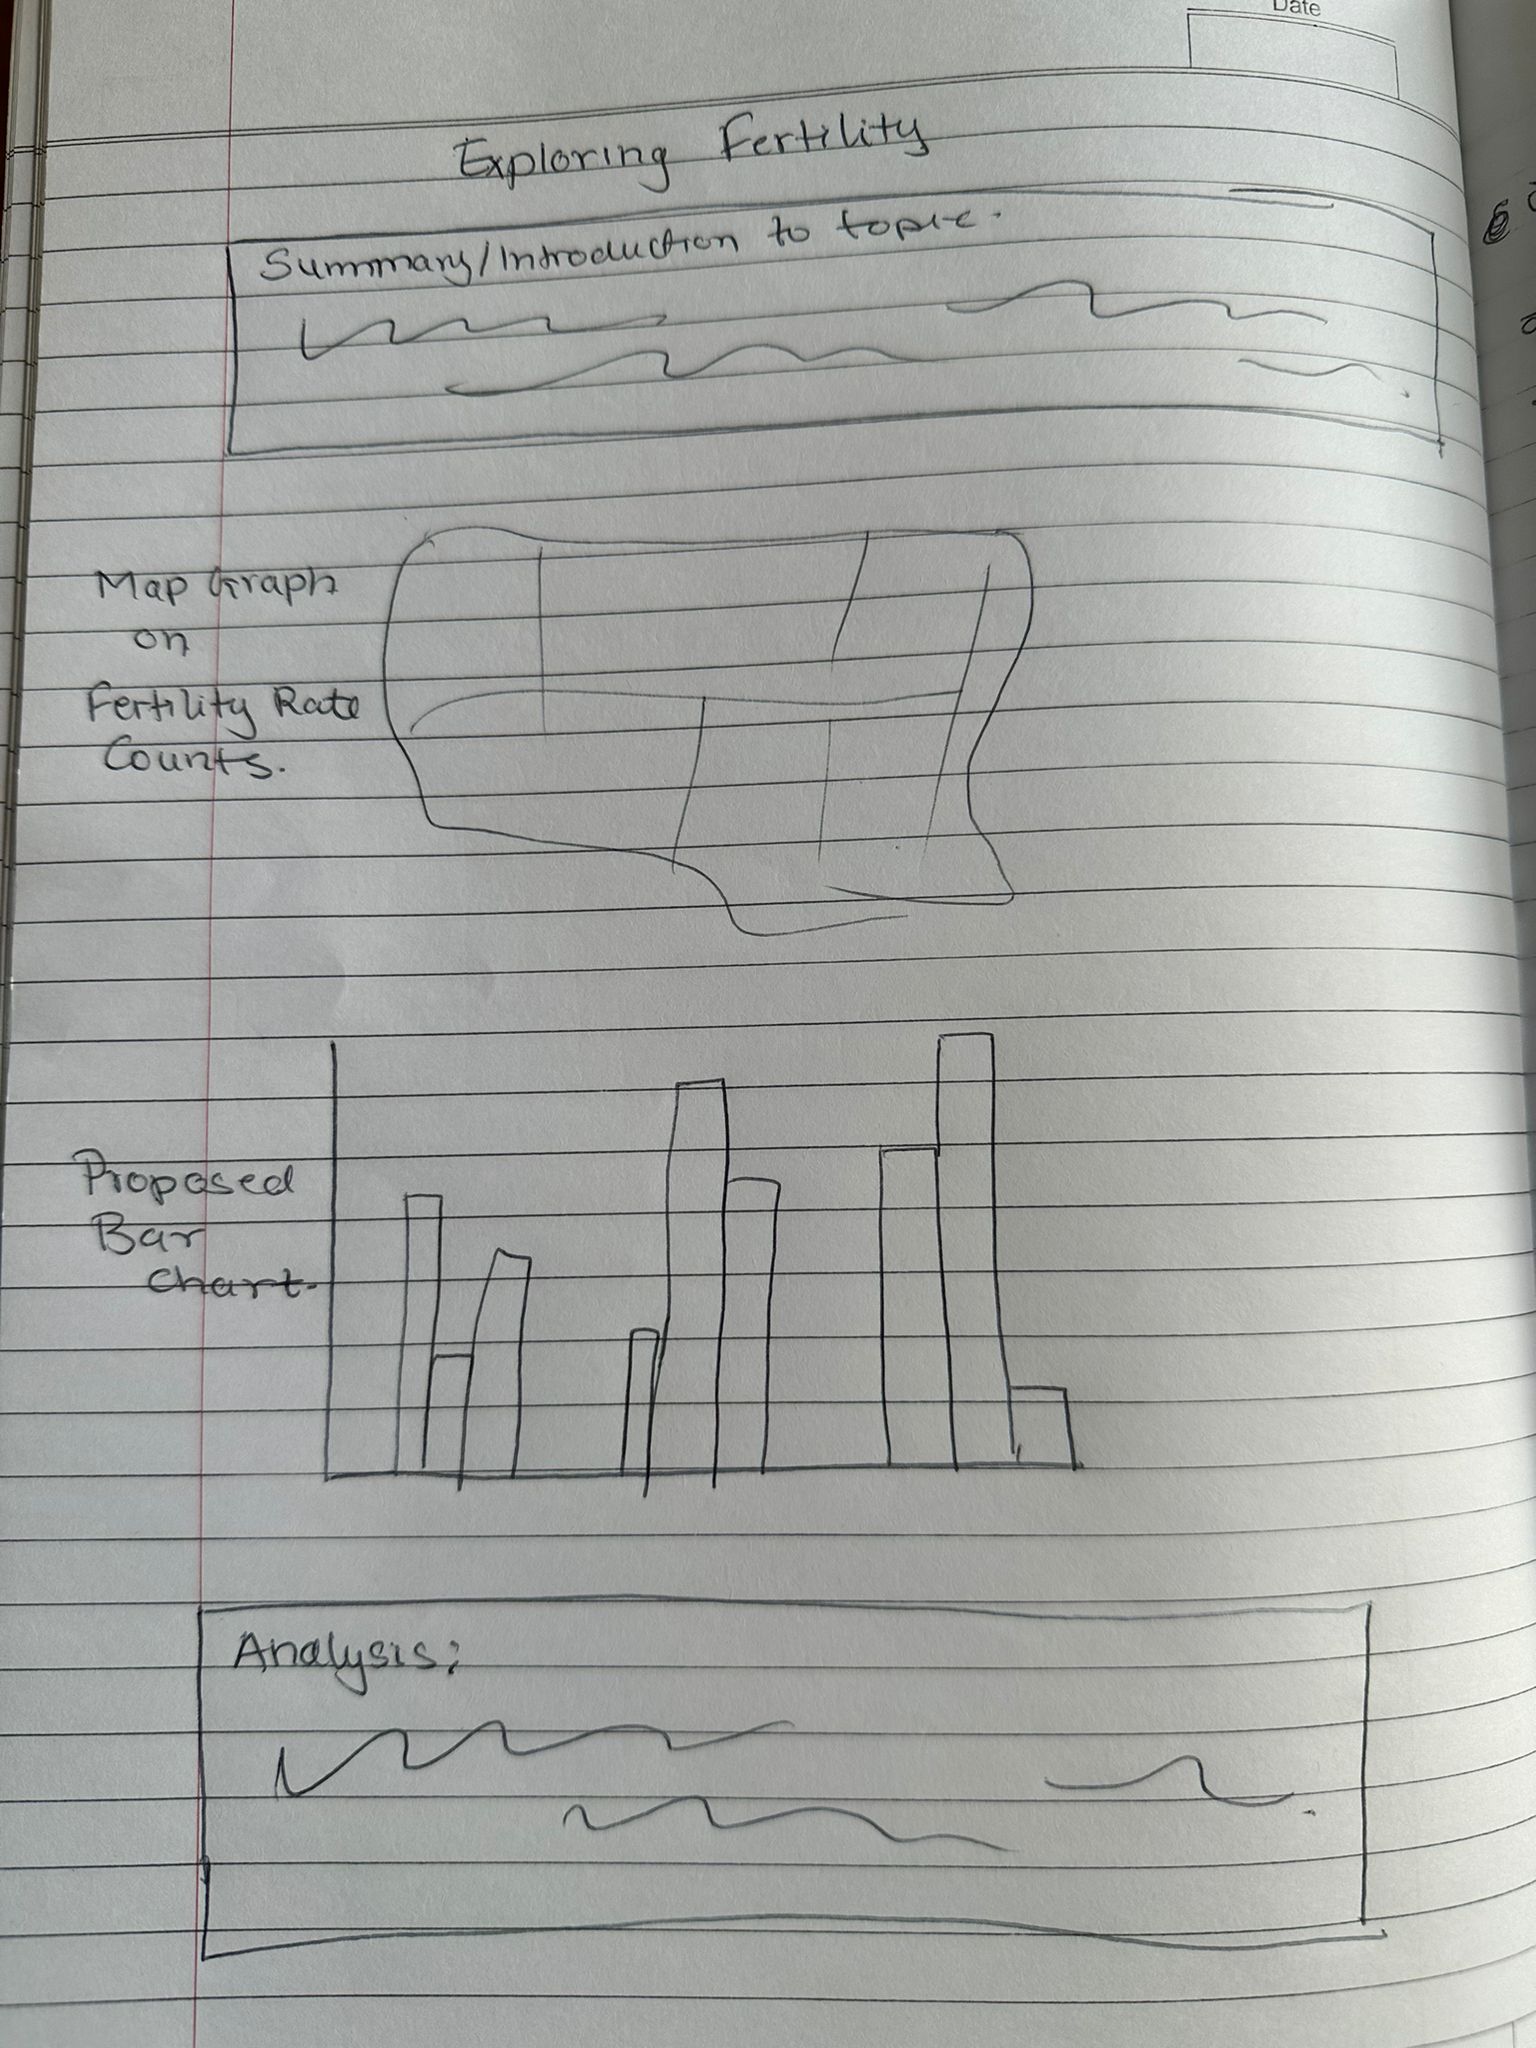 Date
Exploring Fertility
Summary/Introduction to topic.
Map Graph
on
Fertility Rate
Counts.
Proposed
Bar
Chart.
Analysis: